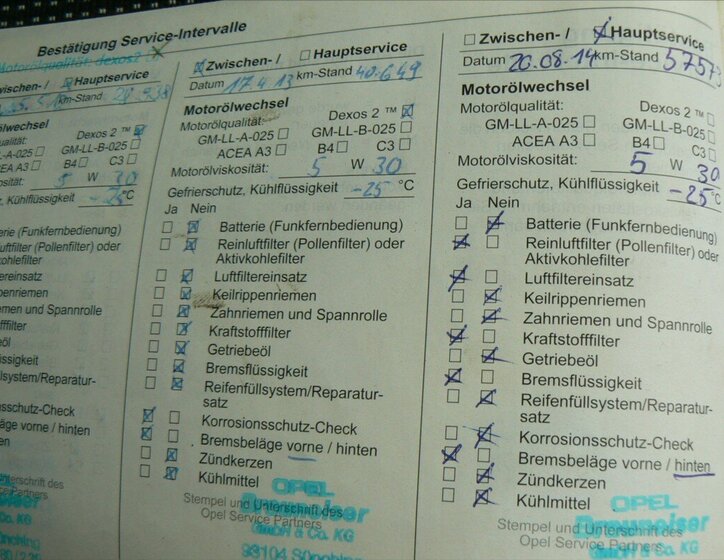 Bestätigung Service-Intervalle
Motorölqualität: dexos2
Zwischen-/ Hauptservice
km-Stand
Ölwechsel
qualität: Dexos 2 ™
LL-A-025 GM-LL-B-025
ACEA A3 B4 C3
kosität: 5 W 30
z, Kühlflüssigkeit -25 °C
terie (Funkfernbedienung)
uftfilter (Pollenfilter) oder
kohlefilter
tereinsatz
ppenriemen
men und Spannrolle
ffilter
eöl
üssigkeit
llsystem/Reparatur-
onsschutz-Check
eläge vorne / hinten
rzen
el
Zwischen- / Hauptservice
Datum 17.4.13 km-Stand 40.649
Motorölwechsel
Motorölqualität: Dexos 2 ™
GM-LL-A-025 GM-LL-B-025
ACEA A3 B4 C3
Motorölviskosität: 5 W 30
Gefrierschutz, Kühlflüssigkeit -25 °C
Ja Nein
Batterie (Funkfernbedienung)
Reinluftfilter (Pollenfilter) oder
Aktivkohlefilter
Luftfiltereinsatz
Keilrippenriemen
Zahnriemen und Spannrolle
Kraftstofffilter
Getriebeöl
Bremsflüssigkeit
Reifenfüllsystem/Reparatur-
satz
Korrosionsschutz-Check
Bremsbeläge vorne / hinten
Zündkerzen
Kühlmittel
OPEL
GmbH & Co. KG
Stempel und Unterschrift des
Opel Service Partners
Zwischen- / Hauptservice
Datum 20.08.14 km-Stand
Motorölwechsel
Motorölqualität: Dexos 2 ™
GM-LL-A-025 GM-LL-B-025
ACEA A3 B4 C3
Motorölviskosität: 5 W 30
Gefrierschutz, Kühlflüssigkeit -25 °C
Ja Nein
Batterie (Funkfernbedienung)
Reinluftfilter (Pollenfilter) oder
Aktivkohlefilter
Luftfiltereinsatz
Keilrippenriemen
Zahnriemen und Spannrolle
Kraftstofffilter
Getriebeöl
Bremsflüssigkeit
Reifenfüllsystem/Reparatur-
satz
Korrosionsschutz-Check
Bremsbeläge vorne / hinten
Zündkerzen
Kühlmittel
OPEL
Stempel und Unterschrift des
Opel Service Partners
GmbH & Co. KG